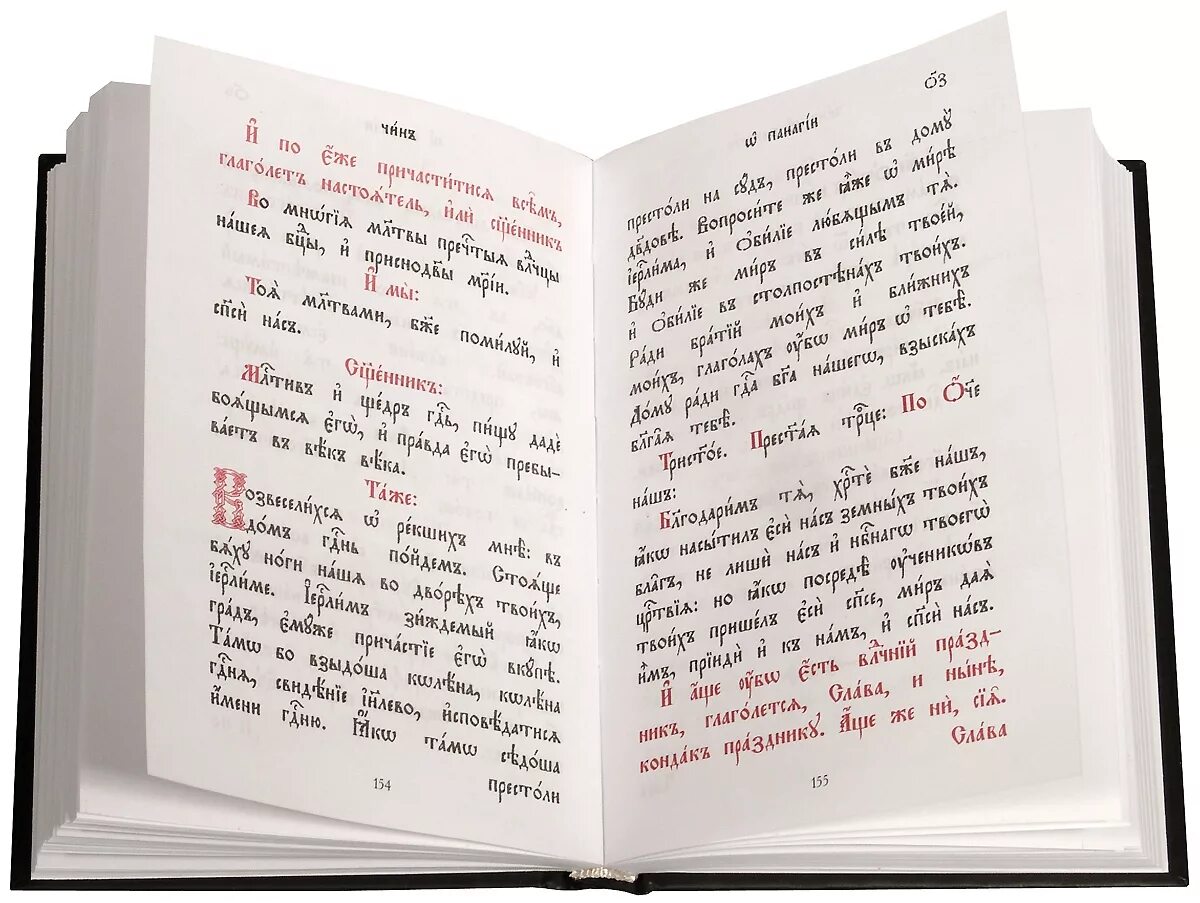 чи́нъ
И҆ по є҆́же причасти́тисѧ всѣ̑мъ,
глаго́летъ настоѧ́тель, и҆лѝ сщ҃е́нникъ
Во мнѡ́гїѧ мл҃твы пречⷭ҇тыѧ влⷣчцы
на́шеѧ бцⷣы, и҆ приснодв҃ы мр҃і́и.
И҆ мы̀:
Тоѧ̀ мл҃твами, бж҃е поми́лꙋй, и҆
сп҃сѝ на́съ.
Сщ҃е́нникъ:
Млⷭ҇тивъ и҆ ще́дръ гдⷭ҇ь, пи́щꙋ дадѐ
боѧ́щымсѧ є҆гѡ̀, и҆ пра́вда є҆гѡ̀ пребы-
ва́етъ въ вѣ́къ вѣ́ка.
Та́же:
Возвесели́хсѧ ѡ҆ ре́кшихъ мнѣ̀: въ
до́мъ гдⷭ҇нь по́йдемъ. Стоѧ́ще
бѧ́хꙋ но́ги на́шѧ во дво́рѣхъ твои́хъ,
і҆ерⷭ҇ли́ме. І҆ерⷭ҇ли́мъ зи́ждемый ꙗ҆́кѡ
гра́дъ, є҆мꙋ́же прича́стїе є҆гѡ̀ вкꙋ́пѣ.
Та́мѡ бо взыдо́ша кѡлѣ́на, кѡлѣ́на
гдⷭ҇нѧ, свидѣ́нїе і҆и҃лево, и҆сповѣ́датисѧ
и҆́мени гдⷭ҇ню. Ꙗ҆́кѡ та́мѡ сѣдо́ша
престо́ли
154
ѡ҆ панагі́и
о҃з
престо́ли на сꙋ́дъ, престо́ли въ домꙋ̀
дв҃довѣ. Вопроси́те же ꙗ҆̀же ѡ҆ ми́рѣ
і҆ерⷭ҇ли́ма, и҆ ѻ҆би́лїе лю́бѧщымъ тѧ̀.
Бꙋ́ди же ми́ръ въ си́лѣ твое́й,
и҆ ѻ҆би́лїе въ столпостѣ́нахъ твои́хъ.
Ра́ди бра́тїй мои́хъ и҆ бли́жнихъ
мои́хъ, глаго́лахъ ᲂу҆́бѡ ми́ръ ѡ҆ тебѣ̀.
До́мꙋ ра́ди гдⷭ҇а бг҃а на́шегѡ, взыска́хъ
бл҃га́ѧ тебѣ̀.
Тристо́е. Прест҃а́ѧ трⷪ҇це: По Ѻ҆́ч҃е
на́шъ:
Благодари́мъ тѧ̀, хрⷭ҇тѐ бж҃е на́шъ,
ꙗ҆́кѡ насы́тилъ є҆сѝ на́съ земны́хъ твои́хъ
бла̑гъ, не лишѝ на́съ и҆ нбⷭ҇нагѡ твоегѡ̀
црⷭ҇твїѧ: но ꙗ҆́кѡ посредѣ̀ ᲂу҆ченикѡ́въ
твои́хъ прише́лъ є҆сѝ сп҃се, ми́ръ даѧ̀
и҆̀мъ, прїидѝ и҆ къ на́мъ, и҆ сп҃сѝ на́съ.
И҆ а҆́ще ᲂу҆́бѡ є҆́сть влⷣчнїй пра́зд-
никъ, глаго́летсѧ, Сла́ва, и ны́нѣ,
конда́къ пра́зднику. А҆́ще же нѝ, сїѧ̑.
Сла́ва
155